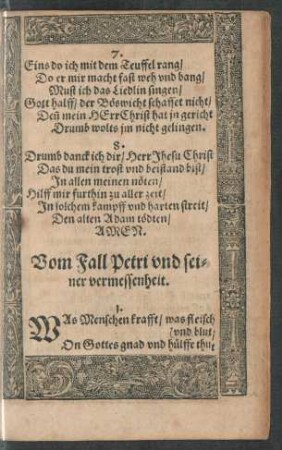 7.
Eins do ich mit dem Teuffel rang/
Do er mir macht fast weh vnd bang/
Must ich das Liedlin singen/
Gott halff/ der Böswicht schaffet nicht/
Deñ mein HErr Christ hat jn gericht
Drumb wolts jm nicht gelingen.
8.
Drumb danck ich dir/ Herr Jhesu Christ
Das du mein trost vnd beistand bist/
In allen meinen nöten/
Hilff mir furthin zu aller zeit/
In solchem kampff vnd harten streit/
Den alten Adam tödten/
AMEN.
Vom Fall Petri vnd sei-
ner vermessenheit.
1.
WAs Menschen krafft/ was fleisch
/vnd blut/
On Gottes gnad vnd hülffe thut